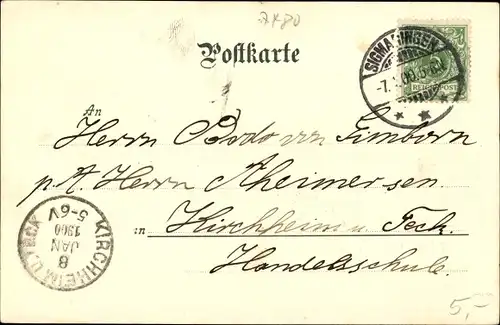 7480
Postkarte
SIGMARINGEN
-7.1.00.5-6N
REICHSPOST
An
Herrn Bodo von Simborn
p. A. Herrn Aheimer sen.
in Kirchheim u. Teck.
Handelsschule.
KIRCHHEIM U. TECK
8
JAN
1900
5-6V
5,-